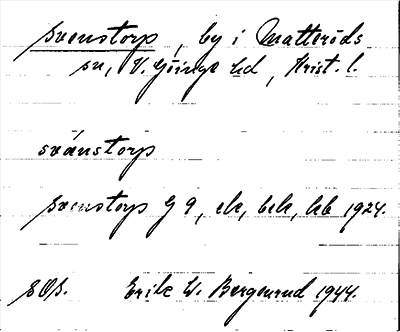 Svenstorp, by i Matteröds
sn, V. Göinge hd, Krist. l.
svánstorp
Svenstorp G 9, ek, bek, hb 1924.
SOſs. Erik W. Bergenrud 1944.